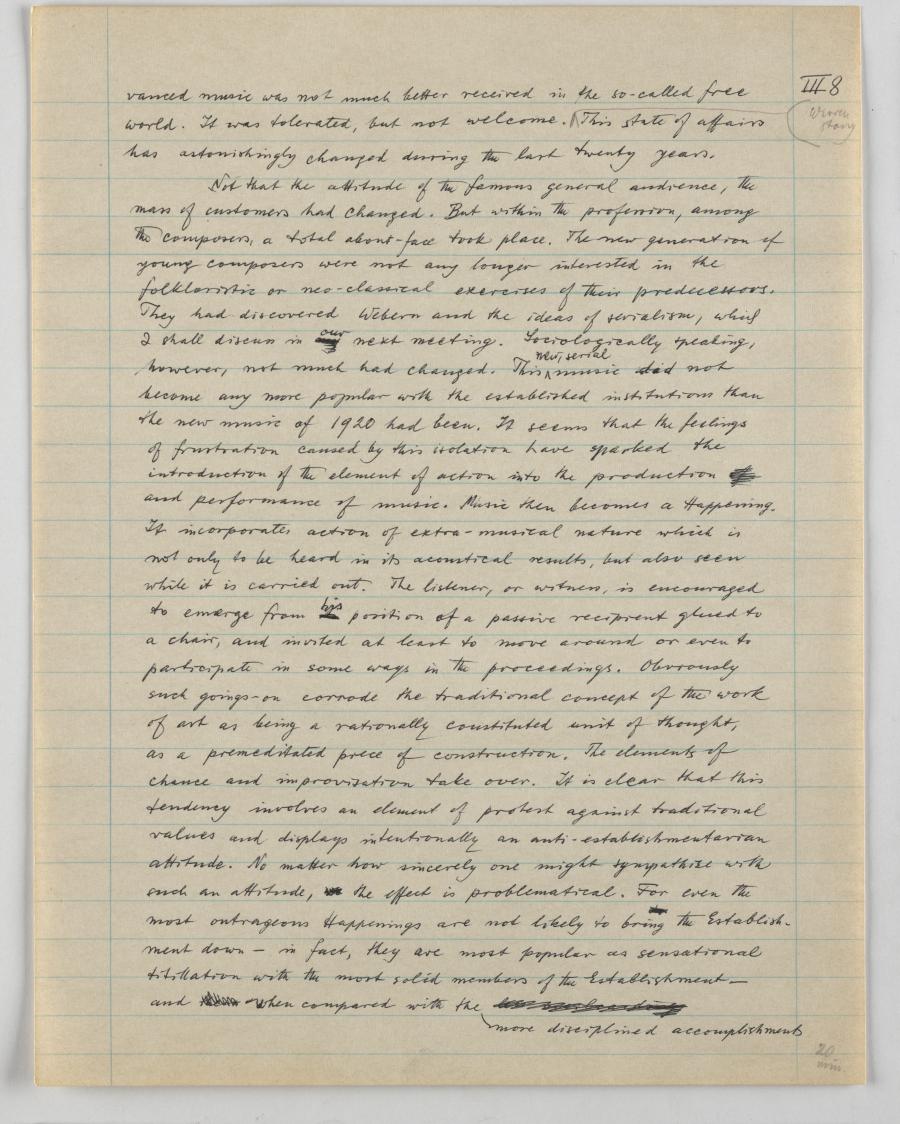 III 8
vanced music was not much better received in the so-called free
world. It was tolerated, but not welcome. This state of affairs
story
has astonishingly changed during the last twenty years.
Not that the attitude of the famous general audience, the
mass of customers had changed. But within the profession, among
the composers, a total about-face took place. The new generation of
young composers were not any longer interested in the
folkloristic or neo-classical exercises of their predecessors.
They had discovered Webern and the ideas of serialism, which
I shall discuss in our next meeting. Sociologically speaking,
however, not much had changed. This new, serial music did not
become any more popular with the established institutions than
the new music of 1920 had been. It seems that the feelings
of frustration caused by this isolation have sparked the
introduction of the element of action into the production
and performance of music. Music then becomes a Happening.
It incorporates action of extra-musical nature which is
not only to be heard in its acoustical results, but also seen
while it is carried out. The listener, or witness, is encouraged
to emerge from his position of a passive recipient glued to
a chair, and invited at least to move around or even to
participate in some ways in the proceedings. Obviously
such goings-on corrode the traditional concept of the work
of art as being a rationally constituted unit of thought,
as a premeditated piece of construction. The elements of
chance and improvisation take over. It is clear that this
tendency involves an element of protest against traditional
values and displays intentionally an anti-establishmentarian
attitude. No matter how sincerely one might sympathize with
such an attitude, the effect is problematical. For even the
most outrageous Happenings are not likely to bring the Establish-
ment down – in fact, they are most popular as sensational
titillation with the most solid members of the Establishment –
and when compared with the
more disciplined accomplishments
20
min.